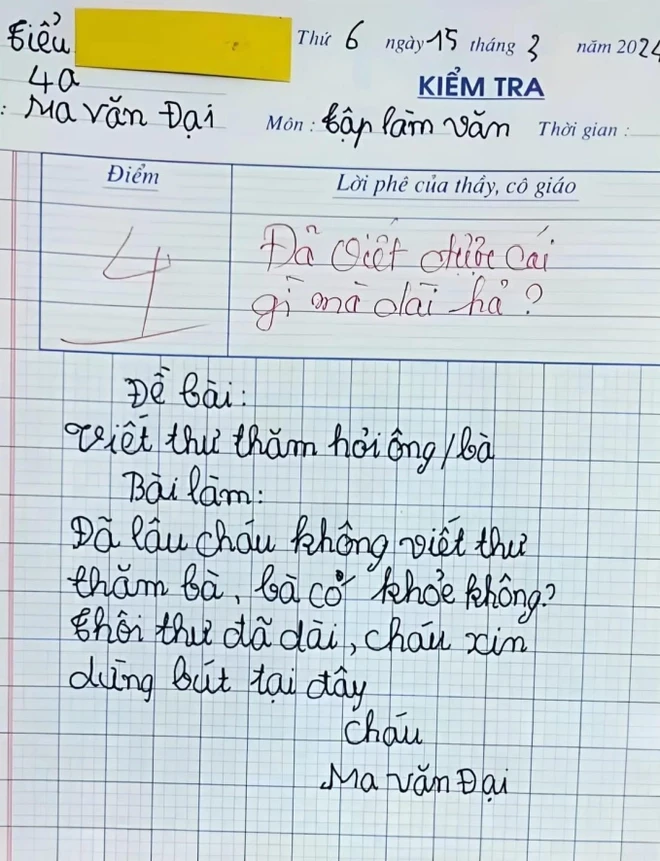 Tiểu
Thứ 6 ngày 15 tháng 3 năm 2024
4a
KIỂM TRA
: Ma văn Đại
Môn : tập làm văn Thời gian :
Điểm
Lời phê của thầy, cô giáo
4
Đã viết được cái
gì mà dài hả ?
Đề bài:
Viết thư thăm hỏi ông/bà
Bài làm:
Đã lâu cháu không viết thư
thăm bà, bà có khỏe không?
Thôi thư đã dài, cháu xin
dừng bút tại đây
Cháu
Ma văn Đại